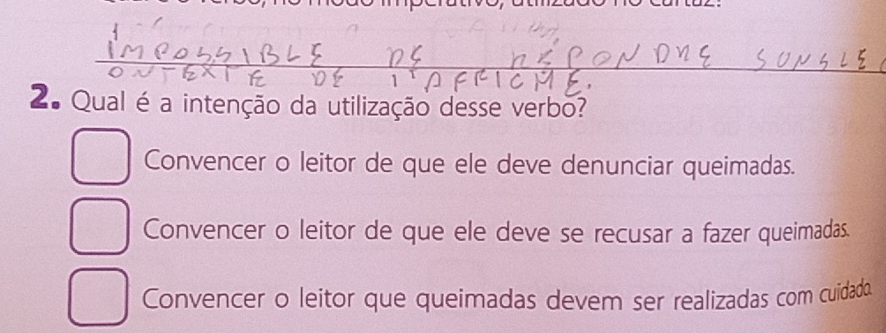 IMPOSSIBLE DE RÉPONDRE SONS LE
2. Qual é a intenção da utilização desse verbo?
Convencer o leitor de que ele deve denunciar queimadas.
Convencer o leitor de que ele deve se recusar a fazer queimadas.
Convencer o leitor que queimadas devem ser realizadas com cuidado.